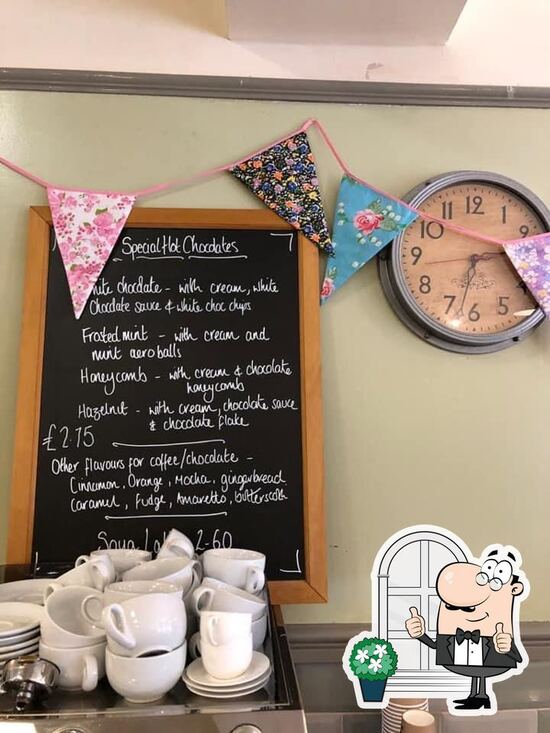 Special Hot Chocolates
hite chocolate - with cream, white
chocolate sauce & white choc chips
Frosted mint - with cream and
mint aero balls
Honeycomb - with cream & chocolate
honeycomb
Hazelnut - with cream, chocolate sauce
& chocolate flake
£2.75
Other flavours for coffee/chocolate -
Cinnamon, Orange, Mocha, gingerbread
Caramel, Fudge, Amaretto, butterscotch
Soya 2-60
12
2
3
4
5
6
7
8
9
10